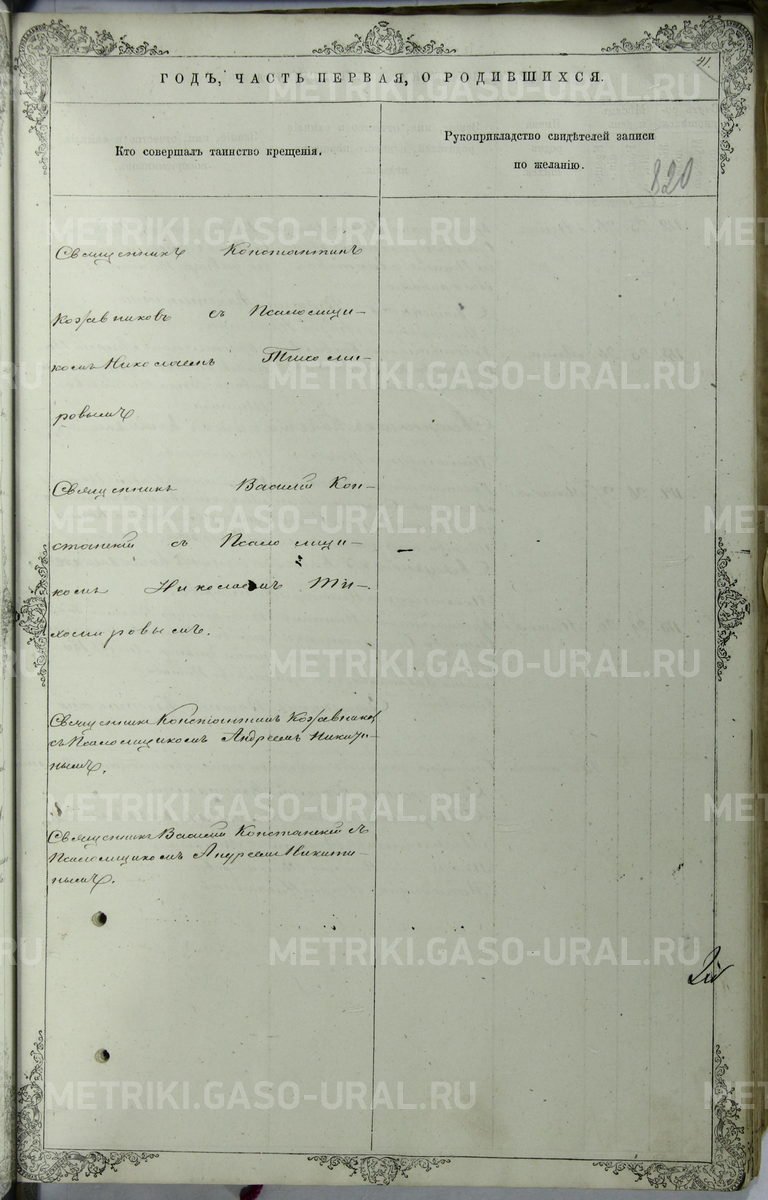 41.
ГОДЪ, ЧАСТЬ ПЕРВАЯ, О РОДИВШИХСЯ.
Кто совершалъ таинство крещенія.
Рукоприкладство свидѣтелей записи
по желанію.
820
Священникъ Константинъ
Кожевниковъ съ Псаломщи-
комъ Николаемъ Тихоми-
ровымъ
Священникъ Василій Кон-
станскій съ Псаломщи-
комъ Николаемъ Ти-
хомировымъ.
Священникъ Константинъ Кожевниковъ
съ Псаломщикомъ Андреемъ Никити-
нымъ.
Священникъ Василій Констанскій съ
Псаломщикомъ Андреемъ Никити-
нымъ.
METRIKI.GASO-URAL.RU